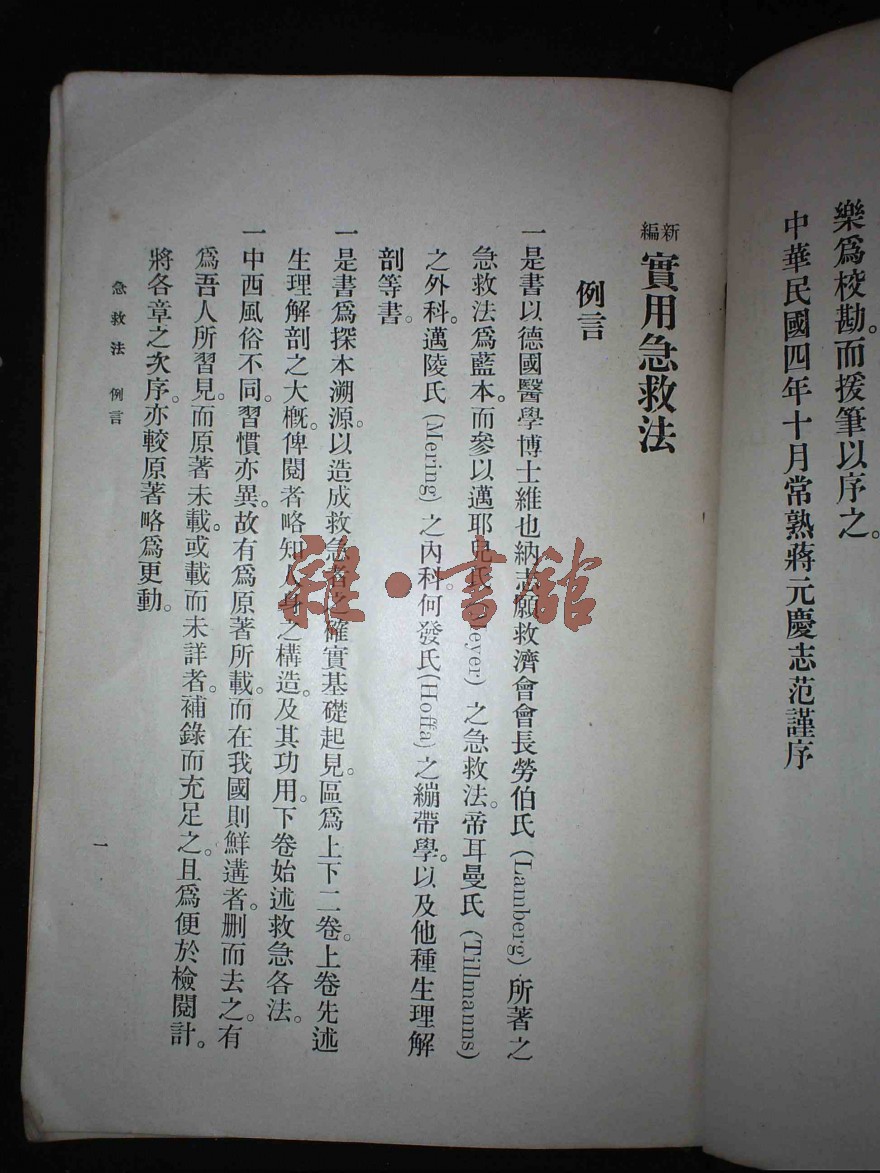 樂爲校勘。而援筆以序之。
中華民國四年十月常熟蔣元慶志范謹序
新編 實用急救法
例言
一是書以德國醫學博士維也納志願救濟會會長勞伯氏(Lamberg)所著之
急救法爲藍本。而參以邁耶兒氏(Meyer)之急救法。帝耳曼氏(Tillmanns)
之外科。邁陵氏(Mering)之內科。何發氏(Hoffa)之繃帶學。以及他種生理解
剖等書。
一是書爲探本溯源。以造成救急者之確實基礎起見。區爲上下二卷。上卷先述
生理解剖之大槪。俾閱者略知人身之構造。及其功用。下卷始述救急各法。
一中西風俗不同。習慣亦異。故有爲原著所載。而在我國則鮮遘者。删而去之。有
爲吾人所習見。而原著未載。或載而未詳者。補錄而充足之。且爲便於檢閱計。
將各章之次序。亦較原著略爲更動。
急救法 例言
一
雜·書館